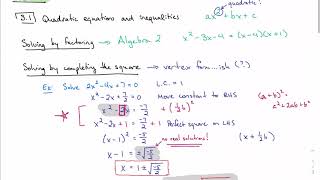 quadratic!
3.1 Quadratic equations and inequalities
ax² + bx + c
Solving by factoring → Algebra 2
x² - 3x - 4 = (x-4)(x+1)
Solving by completing the square → vertex form...ish (?)
Ex: Solve 2x² - 4x + 7 = 0
L.C. = 1
x² - 2x + 7/2 = 0
Move constant to RHS
(a+b)²
x² - 2x = -7/2
+ (½b)²
a² + 2ab + b²
x² - 2x + 1 = -7/2 + 1
Perfect square on LHS
(x-1)² = -5/2
no real solutions!
(x + ½b)
x - 1 = ±√-5/2
x = 1 ± √-5/2